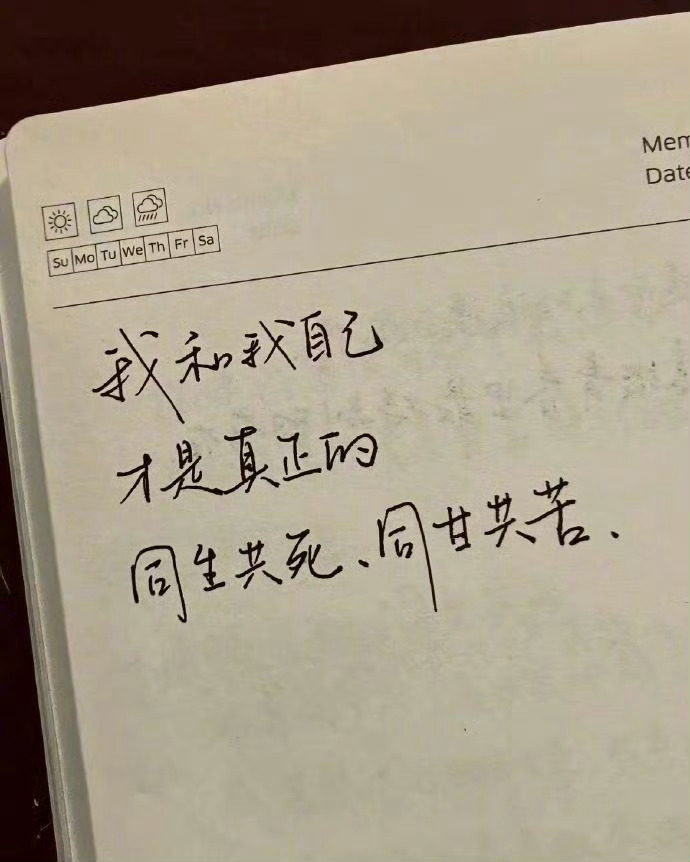 Mem
Date
Su Mo Tu We Th Fr Sa
我和我自己
才是真正的
同生共死、同甘共苦、